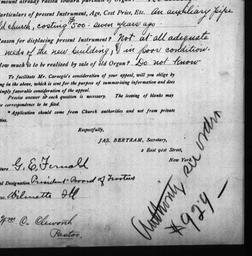 mount already raised toward purchase of Organ?
articulars of present Instrument, Age, Cost Price, Etc. An auxiliary Type
church, costing $500.
Reason for displacing present Instrument? Not at all adequate
needs of the new building, & in poor condition.
much is to be realized by sale of old Organ? Do not know
To facilitate Mr. Carnegie's consideration of your appeal, will you oblige
ing in the above, which is sent for the purpose of memorizing information and does
imply favorable consideration of the appeal.
Precise answer to each question is necessary. The leaving of blanks may
correspondence to no effect.
Application should come from Church authorities and not from private
Respectfully,
JAS. BERTRAM, Secretary,
2 East 91st Street,
New York
G. E. Fernald
President Board of Trustees
Wilmette Ill
Wm. C.
Pastor.
Authority see order
$924—